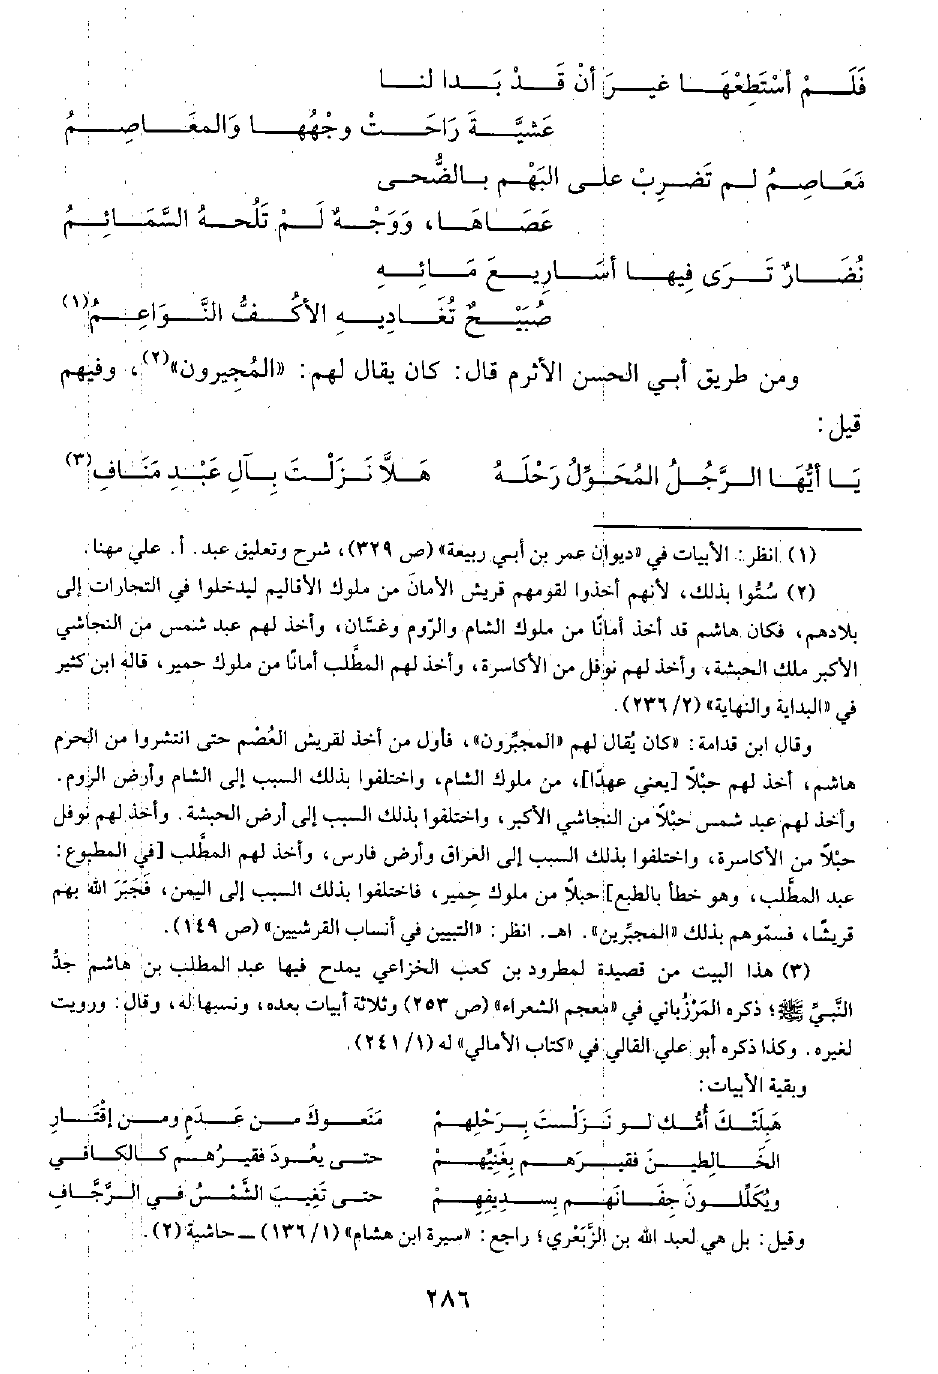 فَلَمْ أسْتَطِعْهَا غيرَ أنْ قَدْ بَدا لنا
عَشيَّةَ رَاحَتْ وجْهُها وَالمعَاصِمُ
مَعَاصِمُ لم تَضرِبْ على البَهْمِ بالضُّحى
عَصَاهَا، وَوَجْهٌ لَمْ تَلُحهُ السَّمَائِمُ
نُضَارٌ تَرَى فِيها أسَاريعَ مَائِهِ
صُبَيْحٌ تُغَادِيهِ الأكُفُّ النَّوَاعِمُ(١)
ومن طريق أبي الحسن الأثرم قال: كان يقال لهم: «المُجيرون»(٢)، وفيهم
قيل:
يَا أيُّهَا الرَّجُلُ المُحَوِّلُ رَحْلَهُ هَلاَّ نَزَلْتَ بِآلِ عَبْدِ مَنَافِ(٣)
(١) انظر: الأبيات في «ديوان عمر بن أبي ربيعة» (ص ٣٢٩)، شرح وتعليق عبد. أ. علي مهنا.
(٢) سُمُّوا بذلك، لأنهم أخذوا لقومهم قريش الأمانَ من ملوك الأقاليم ليدخلوا في التجارات إلى
بلادهم، فكان هاشم قد أخذ أمانًا من ملوك الشام والرّوم وغسَّان، وأخذ لهم عبد شمس من النجاشي
الأكبر ملك الحبشة، وأخذ لهم نوفل من الأكاسرة، وأخذ لهم المطَّلب أمانًا من ملوك حمير، قاله ابن كثير
في «البداية والنهاية» (٢/ ٢٣٦).
وقال ابن قدامة: «كان يُقال لهم «المجبِّرون»، فأول من أخذ لقريش العُصْم حتى انتشروا من الحرم
هاشم، أخذ لهم حبْلاً [يعني عهدًا]، من ملوك الشام، واختلفوا بذلك السبب إلى الشام وأرض الروم.
وأخذ لهم عبد شمس حبْلاً من النجاشي الأكبر، واختلفوا بذلك السبب إلى أرض الحبشة. وأخذ لهم نوفل
حبْلاً من الأكاسرة، واختلفوا بذلك السبب إلى العراق وأرض فارس، وأخذ لهم المطَّلب [في المطبوع:
عبد المطَّلب، وهو خطأ بالطبع] حبلاً من ملوك حِمير، فاختلفوا بذلك السبب إلى اليمن، فَجَبَرَ الله بهم
قريشًا، فسمّوهم بذلك «المجبِّرين». اهـ. انظر: «التبيين في أنساب القرشيين» (ص ١٤٩).
(٣) هذا البيت من قصيدة لمطرود بن كعب الخزاعي يمدح فيها عبد المطلب بن هاشم جدُّ
النبيِّ ﷺ؛ ذكره المَرْزُباني في «معجم الشعراء» (ص ٢٥٣) وثلاثة أبيات بعده، ونسبها له، وقال: ورويت
لغيره. وكذا ذكره أبو علي القالي في «كتاب الأمالي» له (١/ ٢٤١).
وبقية الأبيات:
هَبِلَتْكَ أمُّك لو نَزَلْتَ بِرَحْلِهِمْ مَنَعوكَ من عَدَمٍ ومن إقْتَارِ
الخَالِطينَ فقيرَهم بِغَنِيِّهمْ حتى يعُودَ فقيرُهم كالكافي
ويُكَلِّلونَ جِفَانَهم بسديفِهِمْ حتى تَغِيبَ الشَّمْسُ في الرَّجَّافِ
وقيل: بل هي لعبد الله بن الزَّبَعْري؛ راجع: «سيرة ابن هشام» (١/ ١٣٦) ــ حاشية (٢).
٢٨٦